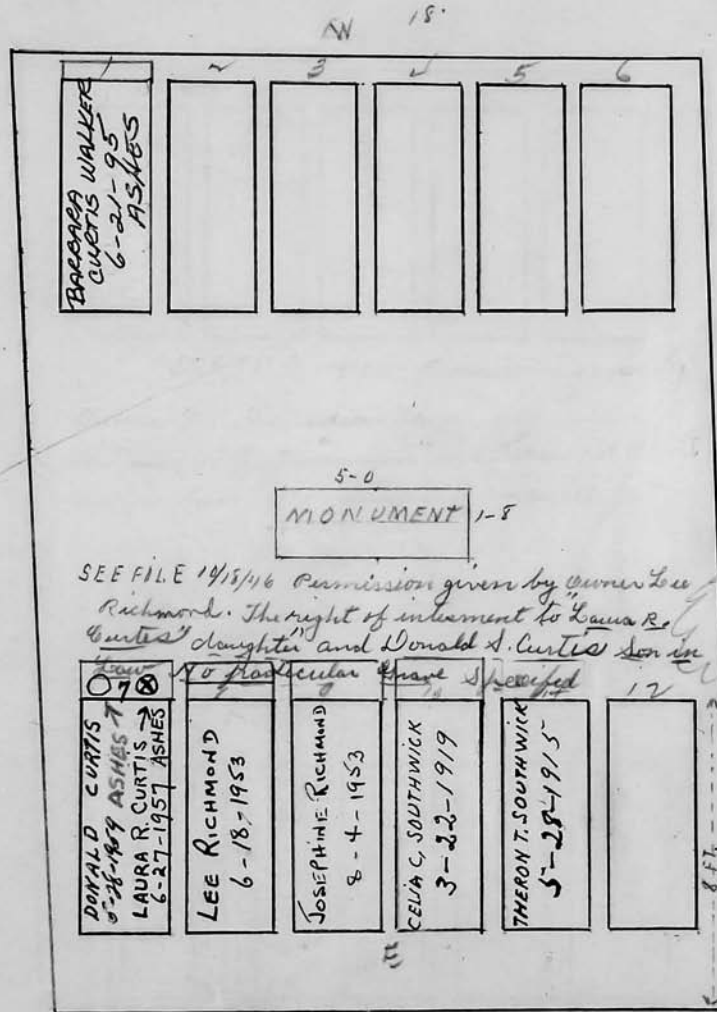 18'
1 2 3 4 5 6
BARBARA
CURTIS WALKER
6-21-95
ASHES
5-0
MONUMENT 1-8
SEE FILE Permission given by owner Lee
Richmond. The right of interment to "Laura R.
Curtis" daughter and Donald S. Curtis Son in
Law No particular Grave Specified
7 12
DONALD CURTIS
ASHES
LAURA R. CURTIS →
6-27-1957 ASHES
LEE RICHMOND
6-18-1953
JOSEPHINE RICHMOND
8-4-1953
CELIA C, SOUTHWICK
3-22-1919
THERON T. SOUTHWICK
5-28-1915
8 ft